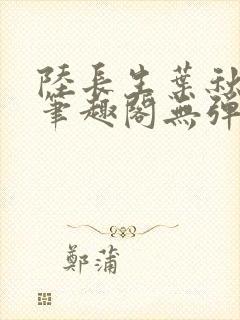 陸長生葉秋
筆趣閣無彈
鄭蒲